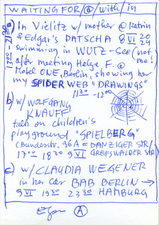 WAITING FOR / @ with / in
a) in Vielitz w/ mother @ Katrin
& Edgar's DATSCHA 8 VI 2024
swimming in WUTZ-See (not me!)
after meeting Helge F. @
Hotel ONE, Berlin, showing how
my SPIDER WEB "DRAWINGS"
11 30 - 12 00
b) w/ WOLFGANG
KNAUFF
talk on children's
playground "SPIELBERG"
(Bundesstr. 96A = DANZIGER STR/
17 00 18 30 9 VI GREIFSWALDER STR)
c) w/ CLAUDIA WEGENER
in her car BAB BERLIN →
9 VI 19 15 23 20 HAMBURG